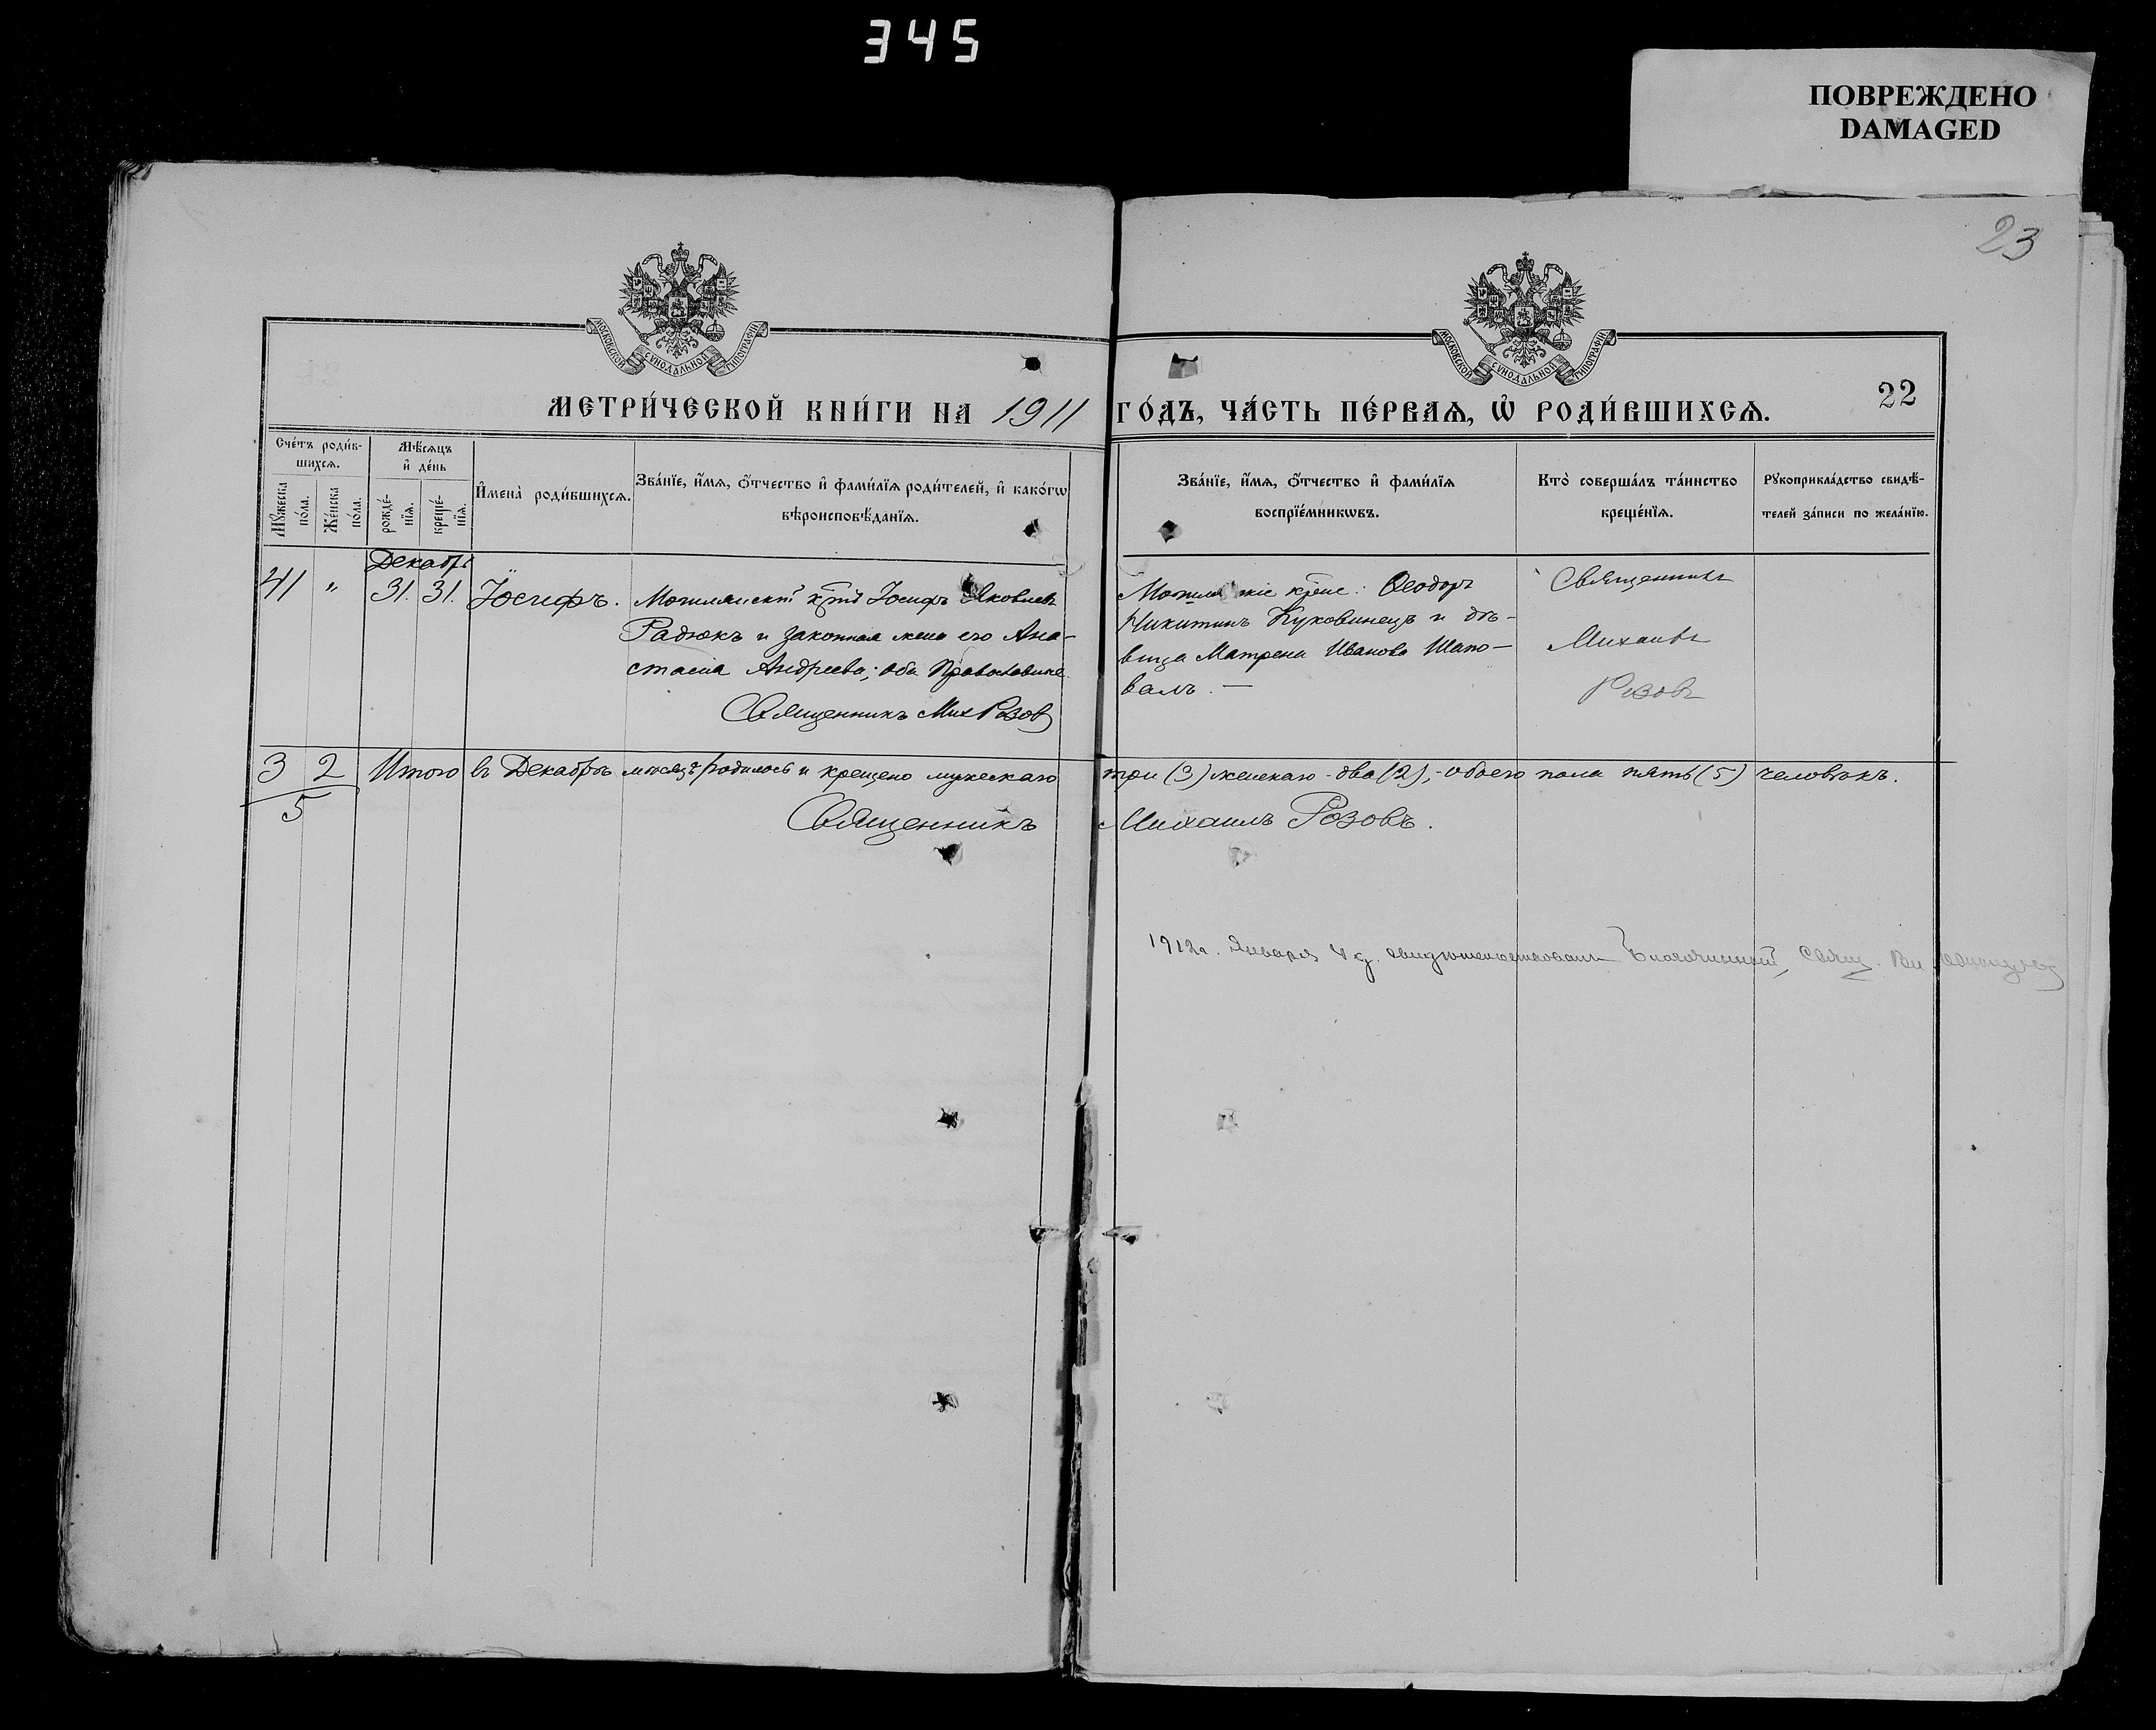 345
ПОВРЕЖДЕНО
DAMAGED
23
МОСКОВСКОЙ СѴНОДАЛЬНОЙ ТИПОГРАФІИ
МОСКОВСКОЙ СѴНОДАЛЬНОЙ ТИПОГРАФІИ
22
МЕТРИ́ЧЕСКОЙ КНИ́ГИ НА 1911 ГО́ДЪ, ЧА́СТЬ ПЕ́РВАѦ, Ѡ҆ РОДИ́ВШИХСѦ.
Сче́тъ роди́в-
шихсѧ.
Мꙋ́жеска
по́ла.
Же́нска
по́ла.
Мѣ́сѧцъ
и҆ де́нь
рожде́-
нїѧ.
креще́-
нїѧ.
И҆мена̀ роди́вшихсѧ.
Зва́нїе, и҆́мѧ, ѻ҆́тчество и҆ фами́лїѧ роди́телей, и҆ како́гѡ
вѣроисповѣ́данїѧ.
Зва́нїе, и҆́мѧ, ѻ҆́тчество и҆ фами́лїѧ
воспрїе́мникѡвъ.
Кто̀ соверша́лъ та́инство
креще́нїѧ.
Рꙋкоприкла́дство свидѣ́-
телей за́писи по жела́нїю.
Декабр
41 " 31. 31. Іосифъ.
Іосифъ Яковлевъ
Радюкъ и законная жена его Ана-
стасія Андреева; оба Православные.
Священникъ Мих Розов
Ѳеодоръ
Никитинъ Куковинецъ и дѣ-
вица Матрена Иванова Шапо-
валъ. —
Священникъ
Михаилъ
Розовъ
3 2 Итого въ Декабрѣ мѣсяцѣ родилось и крещено мужескаго три (3) женскаго - два (2), - обоего пола пять (5) человѣкъ.
5
Священникъ Михаилъ Розовъ.
1912 г. Января 4 д. свидѣтельствовалъ Благочинный, Свящ.